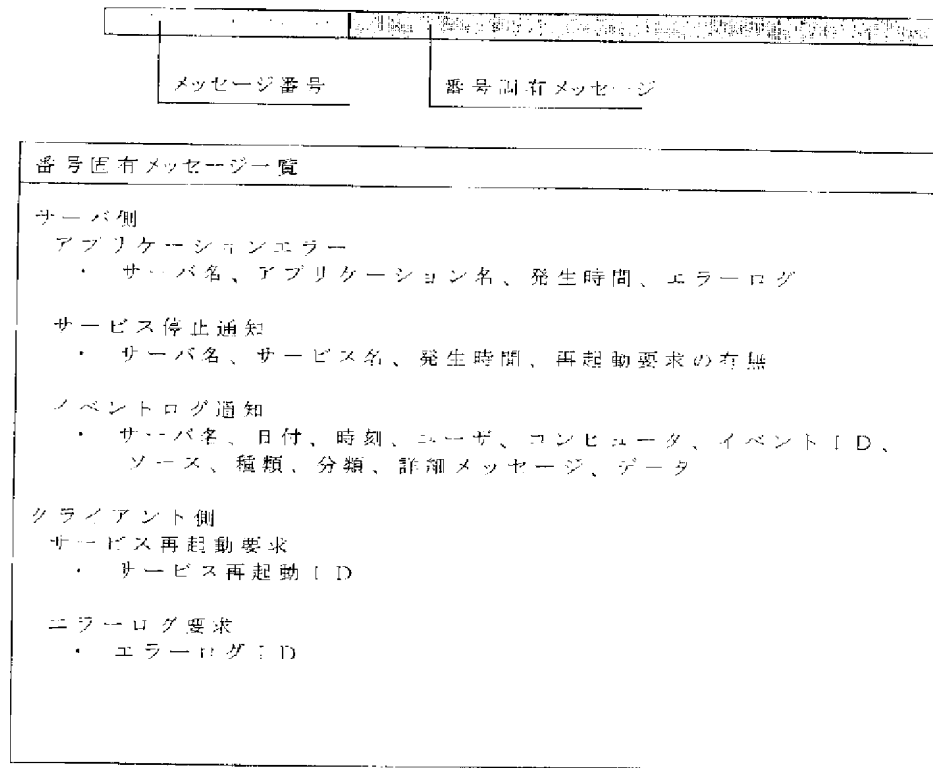 メッセージ番号
番号固有メッセージ
番号固有メッセージ一覧
サーバ側
アプリケーションエラー
・ サーバ名、アプリケーション名、発生時間、エラーログ
サービス停止通知
・ サーバ名、サービス名、発生時間、再起動要求の有無
イベントログ通知
・ サーバ名、日付、時刻、ユーザ、コンピュータ、イベントID、
ソース、種類、分類、詳細メッセージ、データ
クライアント側
サービス再起動要求
・ サービス再起動ID
エラーログ要求
・ エラーログID